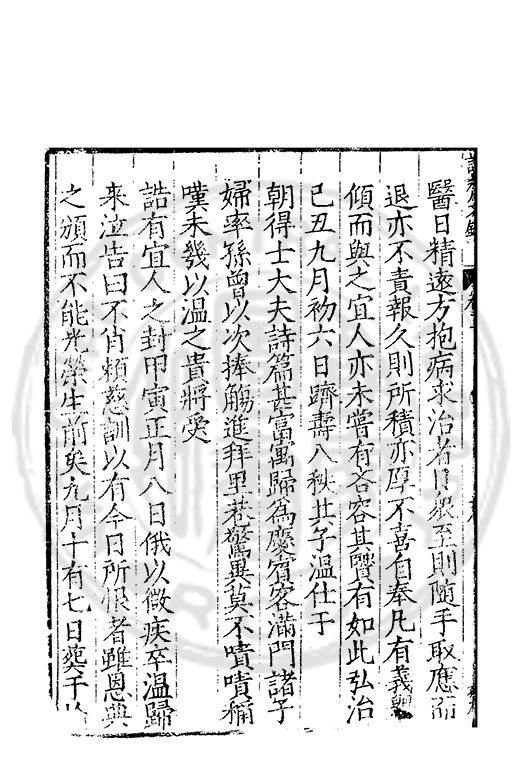 醫日精遠方抱病求治者日衆至則隨手取應而
退亦不責報久則所積亦厚不喜自奉凡有義舉
傾而與之宜人亦未嘗有吝容其賢有如此弘治
己丑九月初六日躋壽八秩其子溫仕于
朝得士大夫詩篇甚富寓歸爲慶賓客滿門諸子
婦率孫曾以次捧觴進拜里巷驚異莫不嘖嘖稱
嘆未幾以溫之貴將受
誥有宜人之封甲寅正月八日俄以微疾卒溫歸
来泣告曰不肖頼慈訓以有今日所恨者雖恩典
之頒而不能光榮生前矣九月十有七日葬于